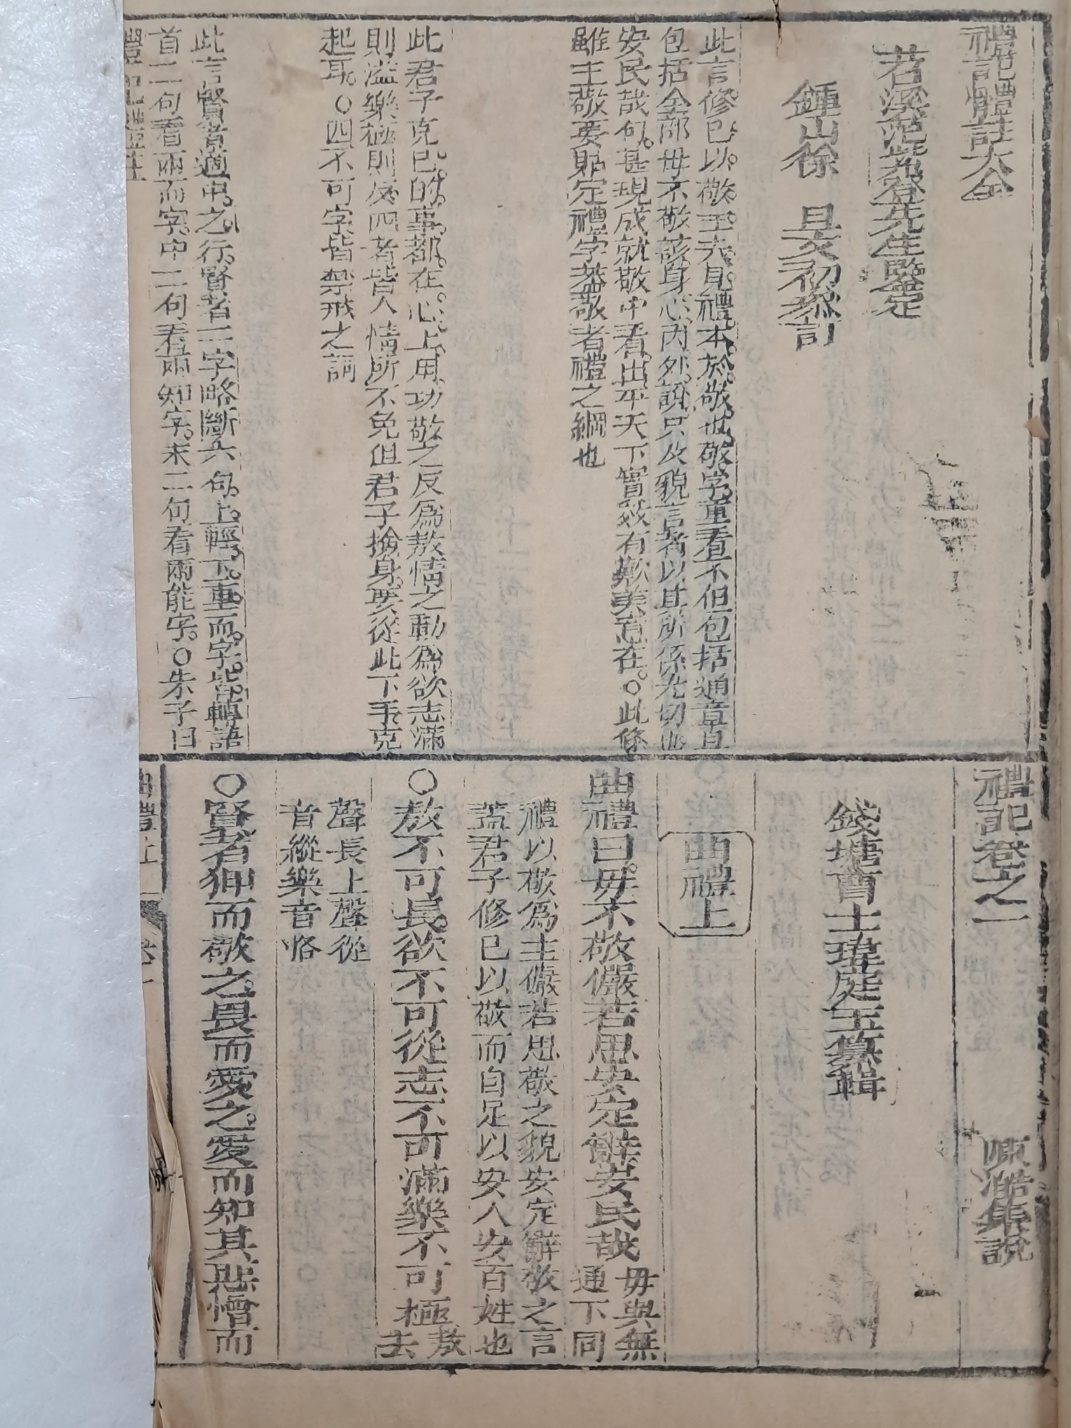 禮記體註大全
苕溪范紫登先生鑒定
鍾山徐 旦文初參訂
此言修己以敬至大見禮本於敬也敬字重看不但包括通章且
包括全部毋不敬該身心內外說只及貌言者以其所係尤切也
安民哉句甚現成就敬中看出平天下實效有歎美意在○此條
雖主敬要貼定禮字蓋敬者禮之綱也
此君子克己的事都在心上用功敬之反爲敖情之動爲欲志滿
則溢樂極則反四者皆人情所不免但君子撿身要從此下手克
起耳○四不可字皆禁戒之詞
此言賢者適中之行賢者二字略斷六句上輕下重而字皆轉語
首二句看兩而字中二句看兩知字末二句看兩能字○朱子曰
禮記卷之一
陳澔集說
錢塘曹士瑋庭玉纂輯
曲禮上
曲禮曰毋不敬儼若思安定辭安民哉 毋與無通下同
禮以敬爲主儼若思敬之貌安定辭敬之言
蓋君子修己以敬而自足以安人安百姓也
○敖不可長欲不可從志不可滿樂不可極 敖去
聲長上聲從
音縱樂音恪
○賢者狎而敬之畏而愛之愛而知其惡憎而